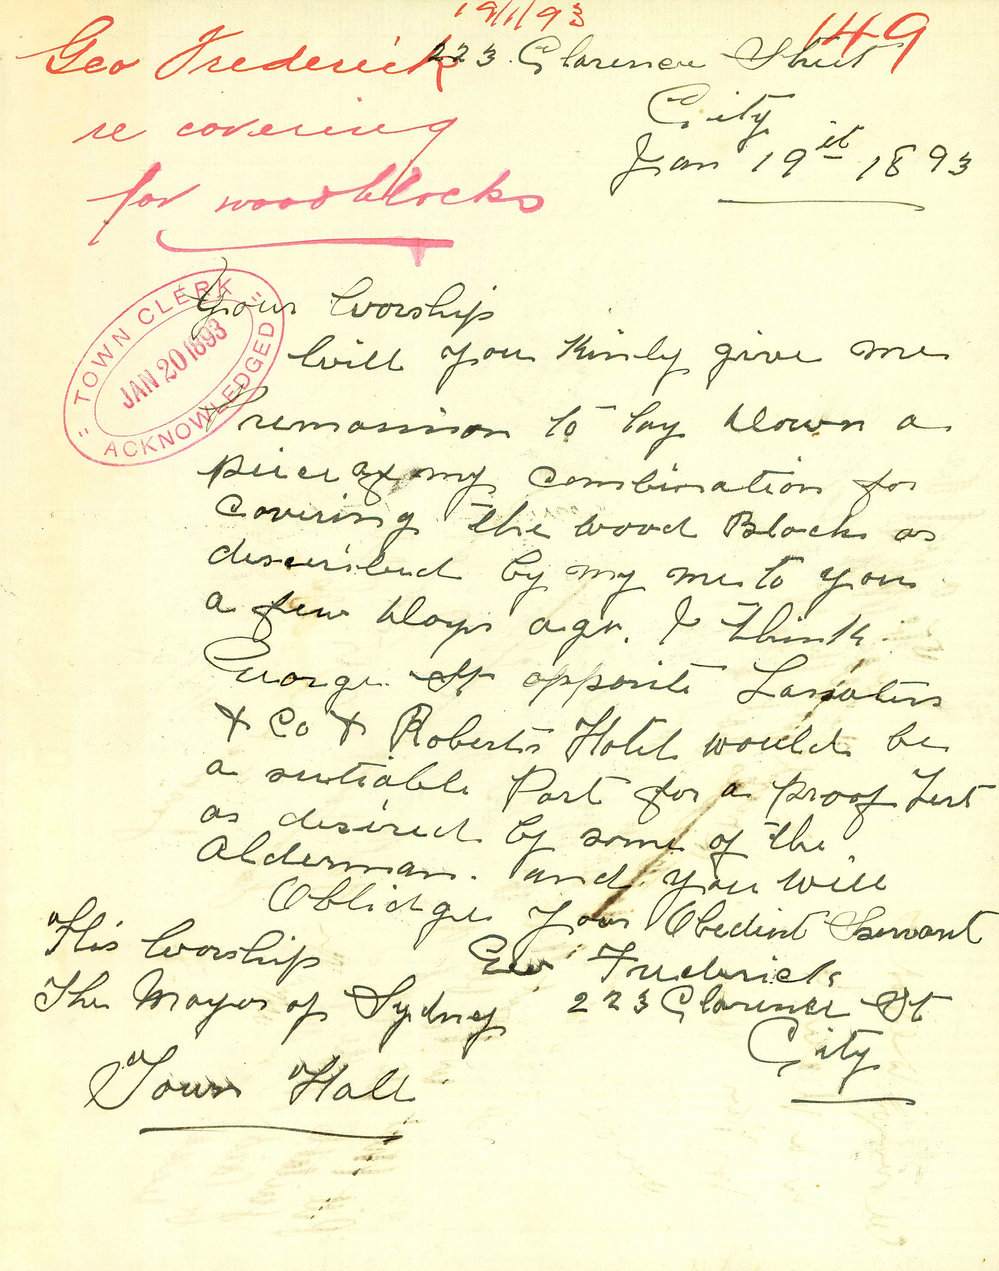 19/1/93
149
Geo Frederick
re covering
for woodblocks
223 Clarence Street
City
Jan 19it 1893
TOWN CLERK
JAN 20 1893
ACKNOWLEDGED
Your Worship
Will you Kinly give me
to lay down a
piece of my combination for
covering the wood Blocks as
described by my me to you
a few days ago. I think
George St opposite Lasseters
& Co & Roberts Hotel would be
a suitable Part for a proof Test
as desired by some of the
Alderman. and you will
Oblidge your Obedint Servant
Geo Frederick
223 Clarence St
City
His Worship
The Mayor of Sydney
Town Hall